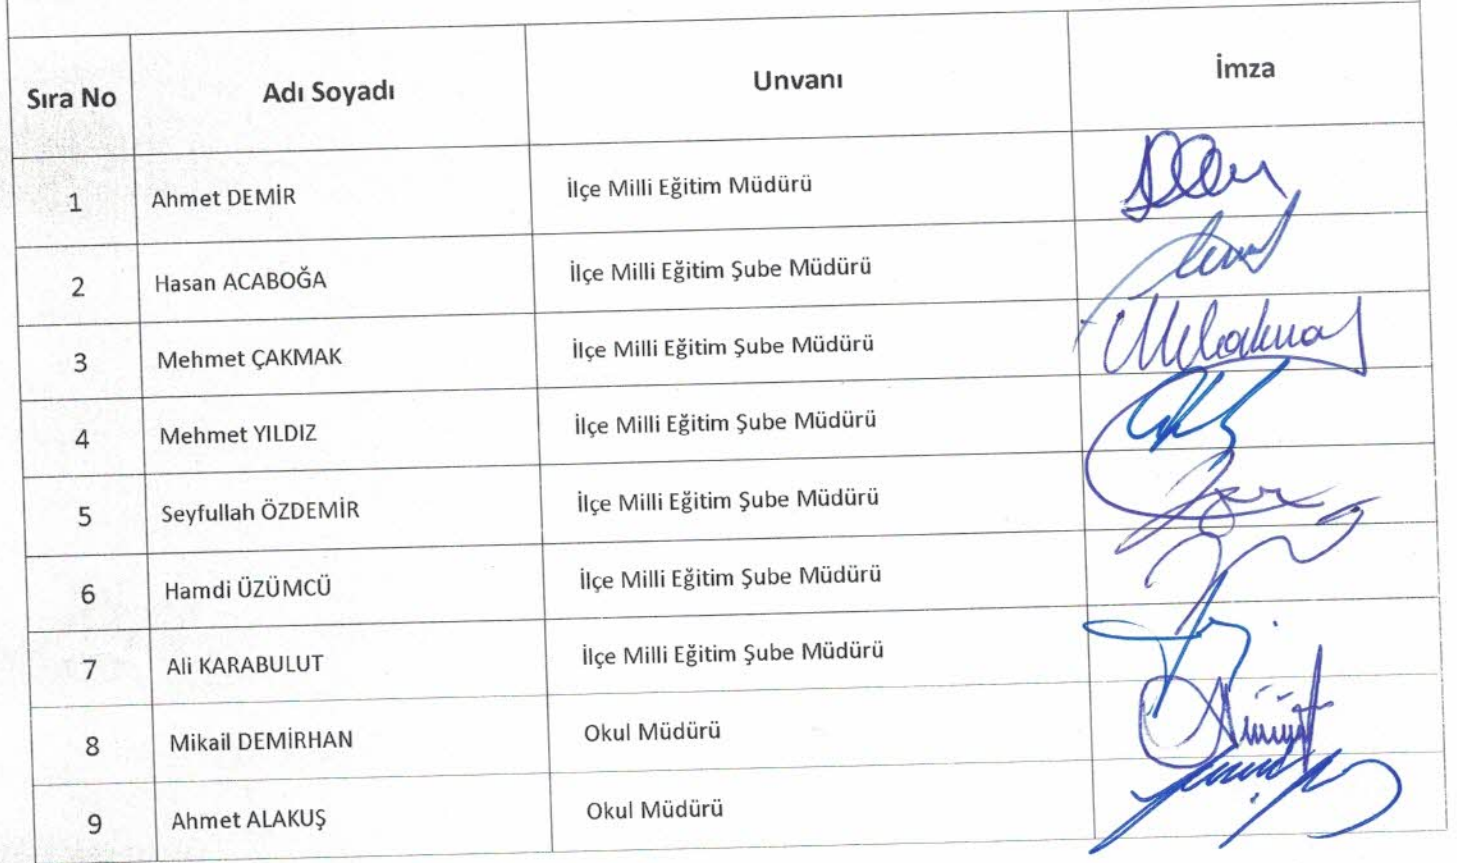 Sıra No Adı Soyadı Unvanı İmza
1 Ahmet DEMİR İlçe Milli Eğitim Müdürü
2 Hasan ACABOĞA İlçe Milli Eğitim Şube Müdürü
3 Mehmet ÇAKMAK İlçe Milli Eğitim Şube Müdürü
4 Mehmet YILDIZ İlçe Milli Eğitim Şube Müdürü
5 Seyfullah ÖZDEMİR İlçe Milli Eğitim Şube Müdürü
6 Hamdi ÜZÜMCÜ İlçe Milli Eğitim Şube Müdürü
7 Ali KARABULUT İlçe Milli Eğitim Şube Müdürü
8 Mikail DEMİRHAN Okul Müdürü
9 Ahmet ALAKUŞ Okul Müdürü